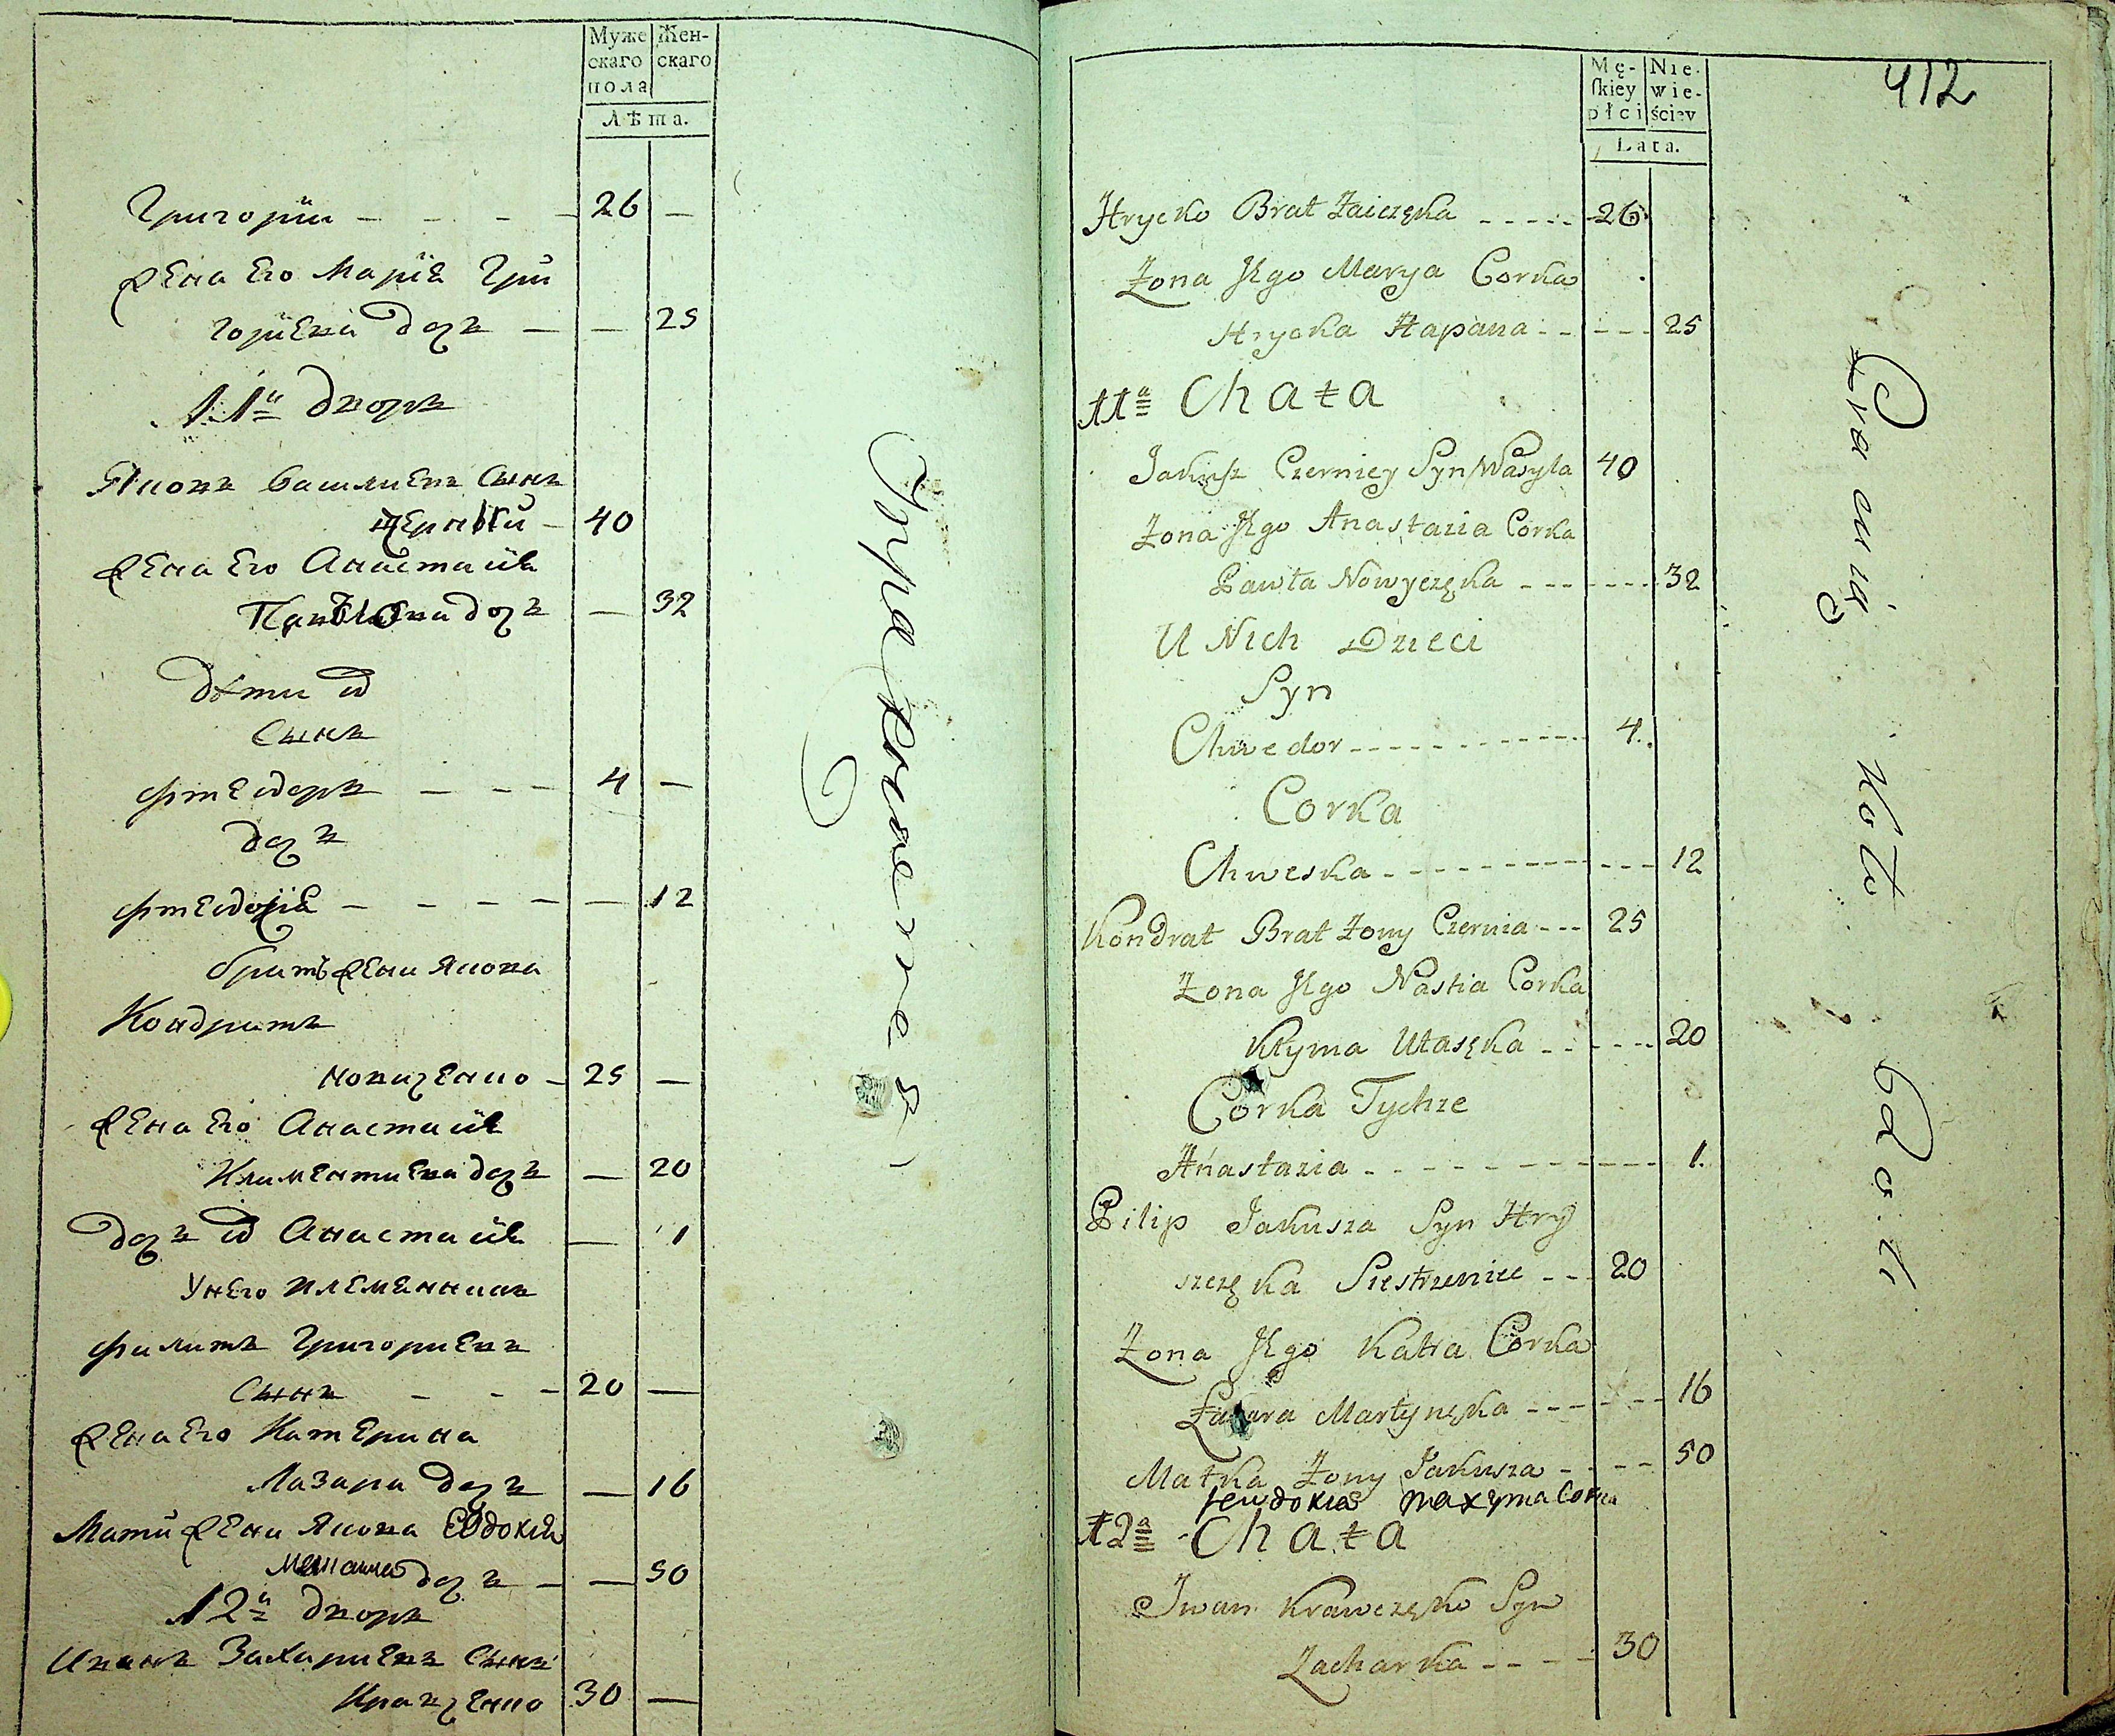 Муже Жен-
скаго скаго
пола
Лѣта.
Григорïи — — — — 26 —
жена Его Марïѣ Гри
горïева дочъ — — 25
11й дворъ
Яковъ Василиевъ Сынъ
черный — 40
жена Его Анастасïѣ
Павлова дочъ — 32
дѣти их
Сынъ
Фтеѡдоръ — — — 4 —
дочъ
Фтеѡдосïѣ — — — — — 12
братъ жени Якова
Кондратъ
новиченко — 25 —
жена Его Анастасïѣ
Климентиева дочъ — 20
дочъ их Анастасïѣ — 1
У него племенникъ
Филипъ Григориевъ
Сынъ — — — 20 —
жена Его Катерина
Лазара дочъ — 16
Мати жени Якова Евдокия
дочъ — — 50
12й дворъ
Иванъ Захариевъ Сынъ
Кравченко 30 —
412
Mę- Nie-
skiey wie-
płci ściey
Lata.
Hrycko Brat Zaiczęka - - - - - 26
Żona Jego Marya Corka
Hrycka Hapana - - - - - 25
11a Chata
Jakusz Czerniey Syn Wasyla 40
Żona Jego Anastazia Corka
Pawła Nowyczęka - - - - - - - 32
U Nich Dzieci
Syn
Chwedor - - - - - - - - - - - 4
Corka
Chweska - - - - - - - - - - - - 12
Kondrat Brat Żony Czernia - - - 25
Żona Jego Nastia Corka
Kłyma Ułasęka - - - - - - 20
Corka Tychże
Anastazia - - - - - - - - - - - 1
Pilip Jakusza Syn Hry
szczęka Siestrzeniec - - - 20
Żona Jego Katra Corka
Łazara Martynęka - - - - - - - 16
Matka Żony Jakusza - - - - 50
Jewdokia Maxyma Corka
12a Chata
Jwan Krawczęko Syn
Zacharka - - - - - 30